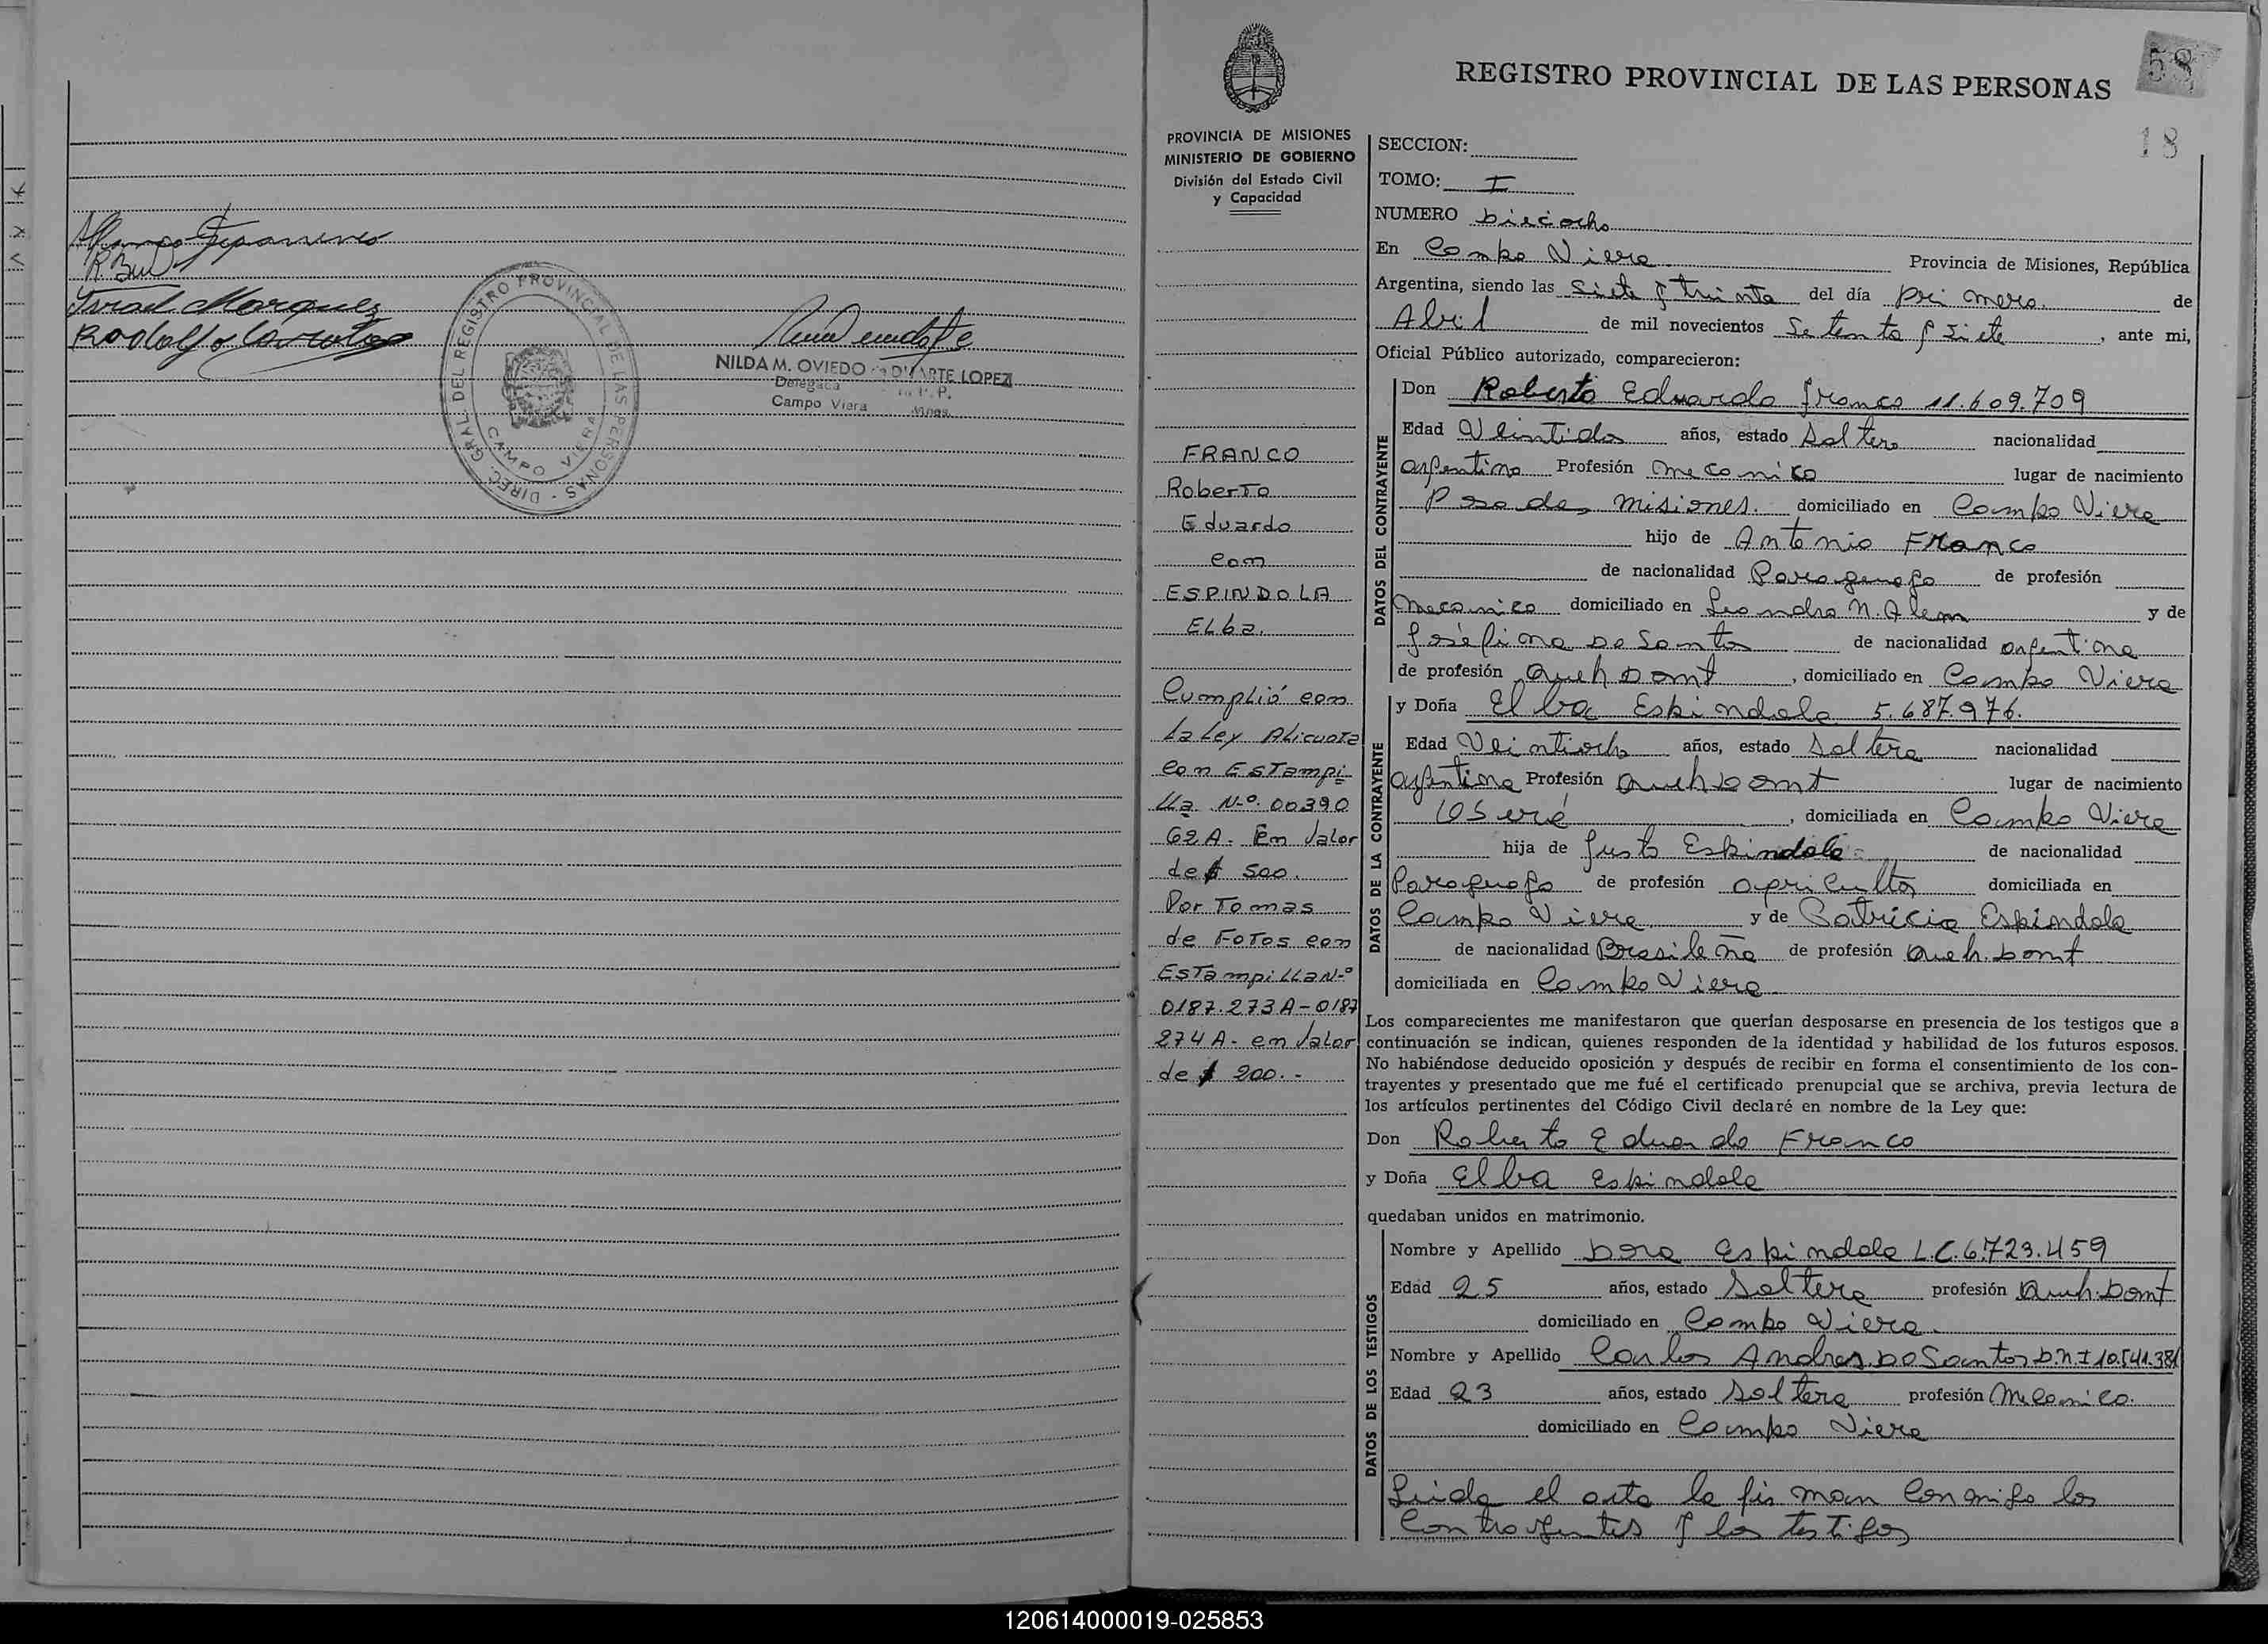 Israel Marquez
Rodolfo
DIREC. GRAL. DEL REGISTRO PROVINCIAL DE LAS PERSONAS -
CAMPO VIERA
NILDA M. OVIEDO de DUARTE LOPEZ
Delegada
Campo Viera Mnes.
58
REGISTRO PROVINCIAL DE LAS PERSONAS
18
PROVINCIA DE MISIONES
MINISTERIO DE GOBIERNO
División del Estado Civil
y Capacidad
FRANCO
Roberto
Eduardo
con
ESPINDOLA
ELba.
Cumplió con
La Ley ALicuota
con EsTampi=
LLa N-º 00390
62 A. En Valor
de $ 500.
Por Tomas
de FoTos con
EsTampiLLa N-º
0187.273 A - 0187
274 A. en Valor
de $ 200. -
SECCION:
TOMO: I
NUMERO dieciocho
En Campo Viera Provincia de Misiones, República
Argentina, siendo las Siete y treinta del día primero de
Abril de mil novecientos Setenta y siete, ante mi,
Oficial Público autorizado, comparecieron:
DATOS DEL CONTRAYENTE
Don Roberto Eduardo Franco 11.609.709
Edad Veintidos años, estado Soltero nacionalidad
argentino Profesión mecanico lugar de nacimiento
Posadas, Misiones. domiciliado en Campo Viera
hijo de Antonio Franco
de nacionalidad Paraguayo de profesión
Mecanico domiciliado en Leandro N. Alem y de
Josefina Do Santos de nacionalidad argentina
de profesión Queh Domt, domiciliado en Campo Viera
DATOS DE LA CONTRAYENTE
y Doña Elba Espindola 5.687.976.
Edad Veintiocho años, estado Soltera nacionalidad
argentina Profesión Queh Domt lugar de nacimiento
, domiciliada en Campo Viera
hija de Justo Espindola de nacionalidad
Paraguayo de profesión agricultor domiciliada en
Campo Viera y de Patricia Espindola
de nacionalidad Brasileña de profesión Queh. Domt
domiciliada en Campo Viera
Los comparecientes me manifestaron que querían desposarse en presencia de los testigos que a
continuación se indican, quienes responden de la identidad y habilidad de los futuros esposos.
No habiéndose deducido oposición y después de recibir en forma el consentimiento de los con-
trayentes y presentado que me fué el certificado prenupcial que se archiva, previa lectura de
los artículos pertinentes del Código Civil declaré en nombre de la Ley que:
Don Roberto Eduardo Franco
y Doña Elba Espindola
quedaban unidos en matrimonio.
DATOS DE LOS TESTIGOS
Nombre y Apellido Dora Espindola L.C. 6.723.459
Edad 25 años, estado Soltera profesión Queh. Domt
domiciliado en Campo Viera.
Nombre y Apellido Carlos Andres Do Santos D.N.I 10.541.381
Edad 23 años, estado Soltera profesión Mecanico.
domiciliado en Campo Viera
Leida el acta la firman conmigo los
Contrayentes y los testigos
120614000019-025853